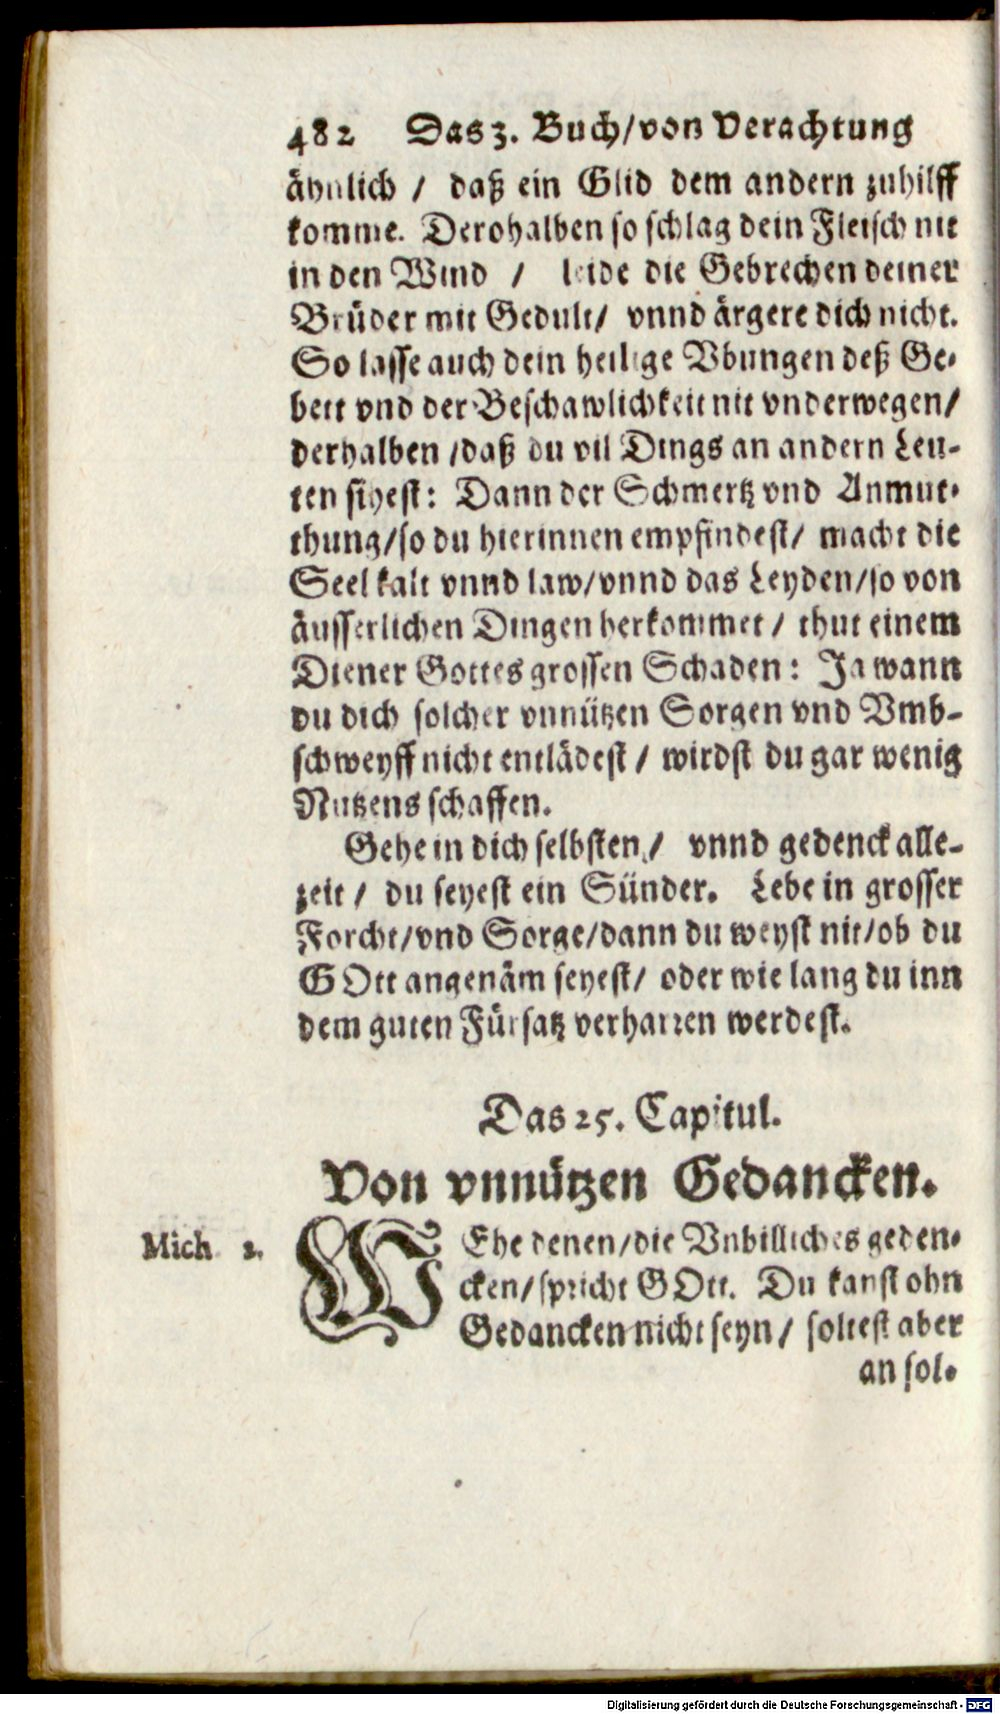 482 Das 3. Buch/von Verachtung
ähnlich / daß ein Glid dem andern zuhilff
komme. Derohalben so schlag dein Fleisch nit
in den Wind / leide die Gebrechen deiner
Brüder mit Gedult/ vnnd ärgere dich nicht.
So lasse auch dein heilige Vbungen deß Ge-
bett vnd der Beschawlichkeit nit vnderwegen/
derhalben /daß du vil Dings an andern Leu-
ten sihest: Dann der Schmertz vnd Anmut-
thung/so du hierinnen empfindest/ macht die
Seel kalt vnnd law/vnnd das Leyden/so von
äusserlichen Dingen herkommet / thut einem
Diener Gottes grossen Schaden: Ja wann
du dich solcher vnnützen Sorgen vnd Vmb-
schweyff nicht entlädest / wirdst du gar wenig
Nutzens schaffen.
Gehe in dich selbsten / vnnd gedenck alle-
zeit / du seyest ein Sünder. Lebe in grosser
Forcht/vnd Sorge/dann du weyst nit/ob du
GOtt angenäm seyest/ oder wie lang du inn
dem guten Fürsatz verharren werdest.
Das 25. Capitul.
Von vnnützen Gedancken.
Mich 2. WEhe denen/die Vnbilliches geden-
cken/spricht GOtt. Du kanst ohn
Gedancken nicht seyn / soltest aber
an sol-
Digitalisierung gefördert durch die Deutsche Forschungsgemeinschaft - DFG